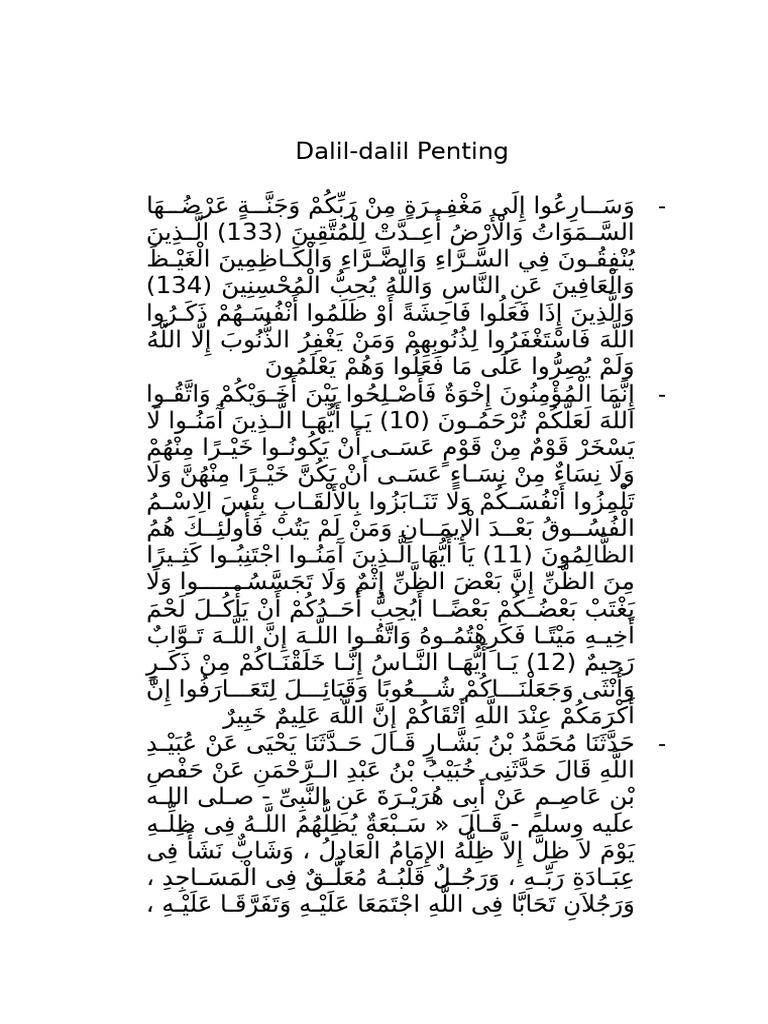 Dalil-dalil Penting
- وَسَــارِعُوا إِلَى مَغْفِـرَةٍ مِنْ رَبِّكُمْ وَجَنَّــةٍ عَرْضُــهَا
السَّـمَوَاتُ وَالْأَرْضُ أُعِـدَّتْ لِلْمُتَّقِينَ (133) الَّـذِينَ
يُنْفِقُـونَ فِي السَّـرَّاءِ وَالضَّـرَّاءِ وَالْكَـاظِمِينَ الْغَيْـظَ
وَالْعَافِينَ عَنِ النَّاسِ وَاللَّهُ يُحِبُّ الْمُحْسِنِينَ (134)
وَالَّذِينَ إِذَا فَعَلُوا فَاحِشَةً أَوْ ظَلَمُوا أَنْفُسَـهُمْ ذَكَـرُوا
اللَّهَ فَاسْتَغْفَرُوا لِذُنُوبِهِمْ وَمَنْ يَغْفِرُ الذُّنُوبَ إِلَّا اللَّهُ
وَلَمْ يُصِرُّوا عَلَى مَا فَعَلُوا وَهُمْ يَعْلَمُونَ
- إِنَّمَا الْمُؤْمِنُونَ إِخْوَةٌ فَأَصْـلِحُوا بَيْنَ أَخَـوَيْكُمْ وَاتَّقُـوا
اللَّهَ لَعَلَّكُمْ تُرْحَمُـونَ (10) يَـا أَيُّهَـا الَّـذِينَ آمَنُـوا لَا
يَسْخَرْ قَوْمٌ مِنْ قَوْمٍ عَسَـى أَنْ يَكُونُـوا خَيْـرًا مِنْهُمْ
وَلَا نِسَاءٌ مِنْ نِسَـاءٍ عَسَـى أَنْ يَكُنَّ خَيْـرًا مِنْهُنَّ وَلَا
تَلْمِزُوا أَنْفُسَـكُمْ وَلَا تَنَـابَزُوا بِالْأَلْقَـابِ بِئْسَ الِاسْـمُ
الْفُسُــوقُ بَعْــدَ الْإِيمَــانِ وَمَنْ لَمْ يَتُبْ فَأُولَئِــكَ هُمُ
الظَّالِمُونَ (11) يَا أَيُّهَا الَّـذِينَ آمَنُـوا اجْتَنِبُـوا كَثِـيرًا
مِنَ الظَّنِّ إِنَّ بَعْضَ الظَّنِّ إِثْمٌ وَلَا تَجَسَّسُــــــوا وَلَا
يَغْتَبْ بَعْضُـكُمْ بَعْضًـا أَيُحِبُّ أَحَـدُكُمْ أَنْ يَأْكُـلَ لَحْمَ
أَخِيـهِ مَيْتًـا فَكَرِهْتُمُـوهُ وَاتَّقُـوا اللَّـهَ إِنَّ اللَّـهَ تَـوَّابٌ
رَحِيمٌ (12) يَـا أَيُّهَـا النَّـاسُ إِنَّـا خَلَقْنَـاكُمْ مِنْ ذَكَـرٍ
وَأُنْثَى وَجَعَلْنَـــاكُمْ شُـــعُوبًا وَقَبَائِـــلَ لِتَعَـــارَفُوا إِنَّ
أَكْرَمَكُمْ عِنْدَ اللَّهِ أَتْقَاكُمْ إِنَّ اللَّهَ عَلِيمٌ خَبِيرٌ
- حَدَّثَنَا مُحَمَّدُ بْنُ بَشَّـارٍ قَـالَ حَـدَّثَنَا يَحْيَى عَنْ عُبَيْـدِ
اللَّهِ قَالَ حَدَّثَنِى خُبَيْبُ بْنُ عَبْدِ الـرَّحْمَنِ عَنْ حَفْصِ
بْنِ عَاصِـمٍ عَنْ أَبِى هُرَيْـرَةَ عَنِ النَّبِىِّ - صـلى اللـه
عليه وسلم - قَـالَ « سَـبْعَةٌ يُظِلُّهُمُ اللَّـهُ فِى ظِلِّـهِ
يَوْمَ لاَ ظِلَّ إِلاَّ ظِلُّهُ الإِمَامُ الْعَادِلُ ، وَشَابٌّ نَشَأَ فِى
عِبَـادَةِ رَبِّـهِ ، وَرَجُـلٌ قَلْبُـهُ مُعَلَّـقٌ فِى الْمَسَـاجِدِ ،
وَرَجُلاَنِ تَحَابَّا فِى اللَّهِ اجْتَمَعَا عَلَيْـهِ وَتَفَرَّقَـا عَلَيْـهِ ،